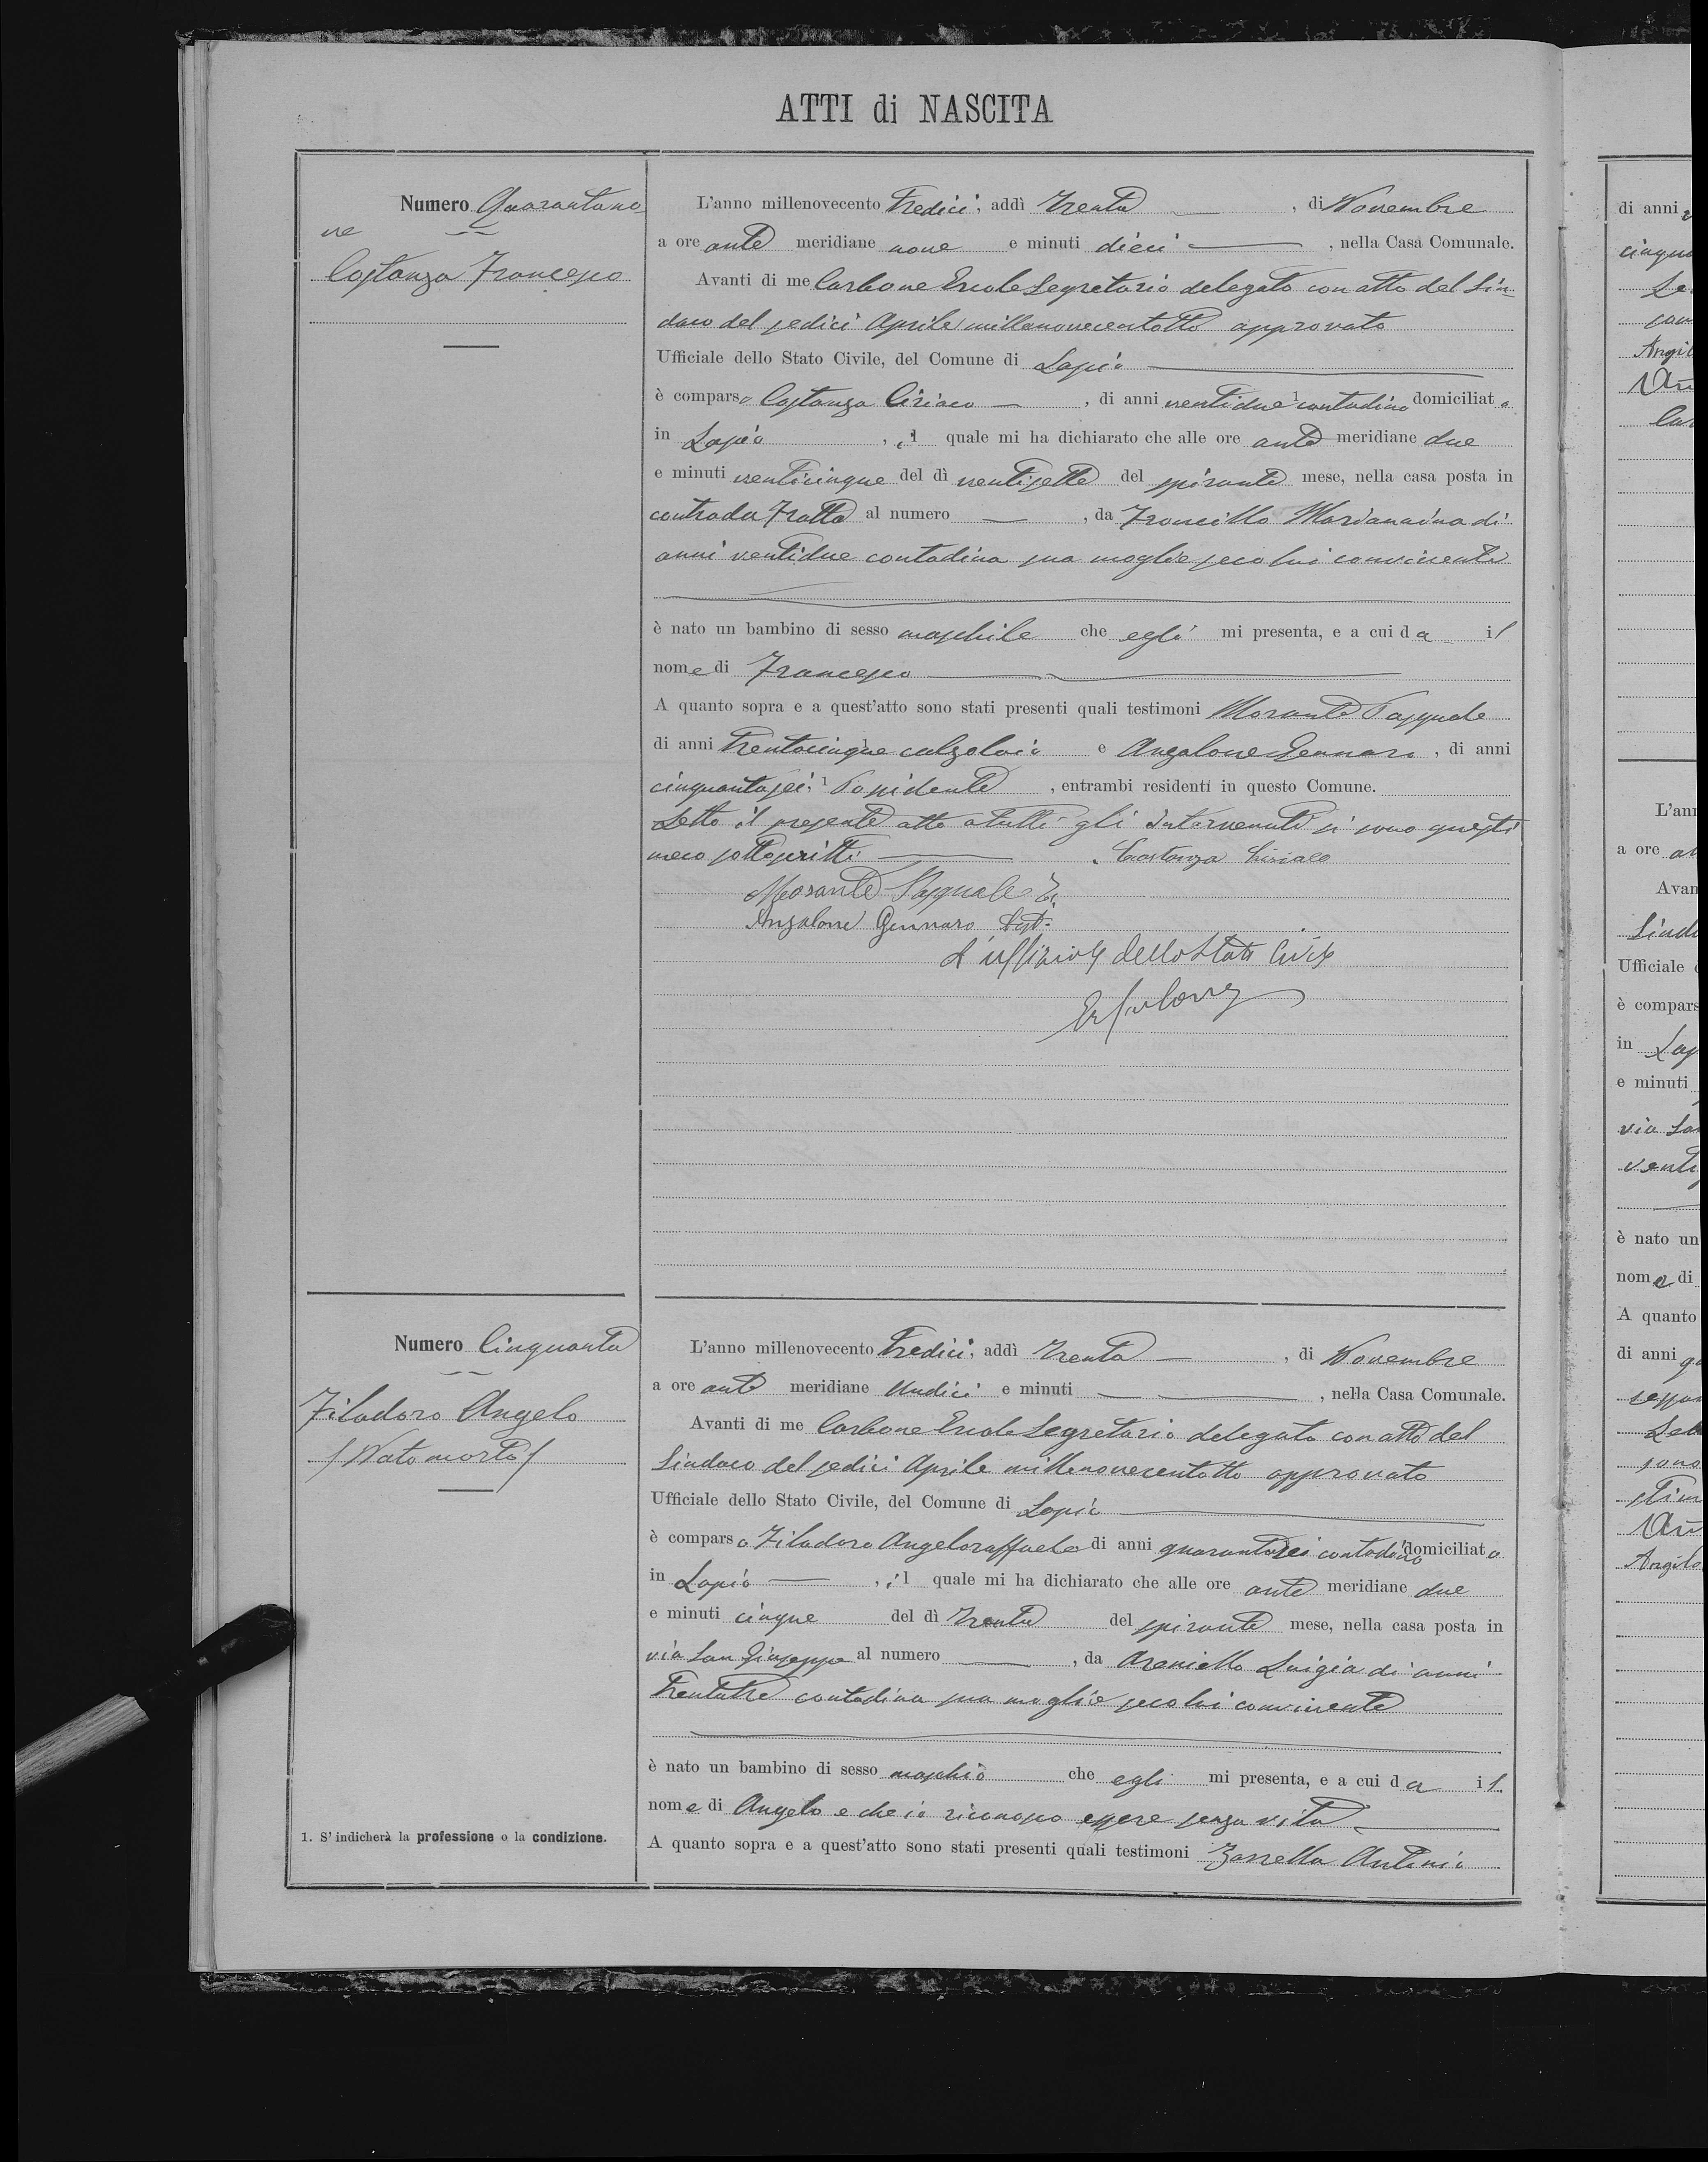 ATTI di NASCITA
Numero Quarantano
ve
Costanza Francesco
L'anno millenovecento Tredici, addì Trenta, di Novembre
a ore ante meridiane nove e minuti dieci, nella Casa Comunale.
Avanti di me Carbone Ercole Segretario delegato con atto del Sin-
daco del sedici Aprile millenovecentotto approvato
Ufficiale dello Stato Civile, del Comune di Lapio
è comparso Costanza Ciriaco, di anni ventidue 1 contadino domiciliato
in Lapio, il quale mi ha dichiarato che alle ore ante meridiane due
e minuti venticinque del dì ventisette del spirante mese, nella casa posta in
contrada Fratte al numero —, da Troncillo Mariannina di
anni ventidue contadina sua moglie seco lui convivente
è nato un bambino di sesso maschile che egli mi presenta, e a cui da il
nome di Francesco
A quanto sopra e a quest'atto sono stati presenti quali testimoni Morante Pasquale
di anni Trentacinque 1 calzolaio e Anzalone Gennaro, di anni
cinquantasei, 1 Possidente, entrambi residenti in questo Comune.
Letto il presente atto a tutti gli intervenuti si sono questi
meco sottoscritti Costanza Ciriaco
Morante Pasquale T.
Anzalone Gennaro Test.
L'uffiziale dello Stato Civile
E Carbone
Numero Cinquanta
Filadoro Angelo
/ Nato morto /
L'anno millenovecento Tredici, addì Trenta, di Novembre
a ore ante meridiane Undici e minuti —, nella Casa Comunale.
Avanti di me Carbone Ercole Segretario delegato con atto del
Sindaco del sedici Aprile millenovecentotto approvato
Ufficiale dello Stato Civile, del Comune di Lapio
è comparso Filadoro Angeloraffaele di anni quarantasei contadino domiciliato
in Lapio, il quale mi ha dichiarato che alle ore ante meridiane due
e minuti cinque del dì Trenta del spirante mese, nella casa posta in
via San Giuseppe al numero —, da Araniello Luigia di anni
Trentatre contadina sua moglie seco lui convivente
è nato un bambino di sesso maschio che egli mi presenta, e a cui da il
nome di Angelo e che io riconosco essere senza vita
A quanto sopra e a quest'atto sono stati presenti quali testimoni Zarrella Antonio
1. S' indicherà la professione o la condizione.
di anni
cinqua
L'ann
a ore
Avan
Sinda
Ufficiale
è compars
in Lap
e minuti
via
venti
è nato un
nome di
A quanto
di anni